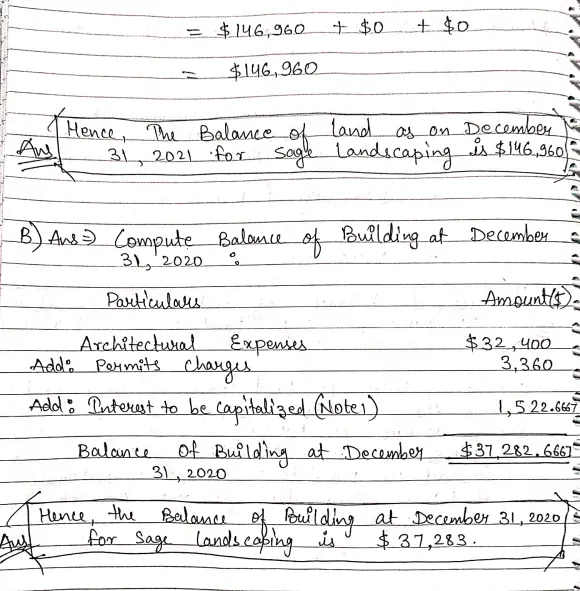 = $146,960 + $0 + $0
= $146,960
Hence, The Balance of land as on December
Ans 31, 2021 for Sage Landscaping is $146,960
B) Ans ⇒ Compute Balance of Building at December
31, 2020 :
Particulars Amount($).
Architectural Expenses $32,400
Add: Permits charges 3,360
Add: Interest to be capitalized (Note 1) 1,522.6667
Balance Of Building at December $37,282.6667
31, 2020
Hence, the Balance of Building at December 31, 2020
Ans for Sage Landscaping is $37,283.